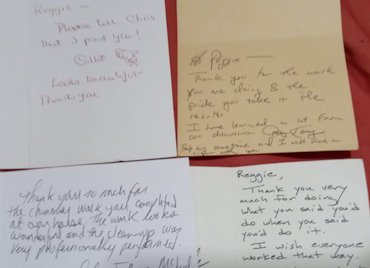 Reggie ~
Please tell Chris
that I paid you!
Looks beautiful-
Thank you
Reggie
Thank you for the work
you are doing & the
pride you take in the
results
I have learned a lot from
our discussions
Stop by anytime and I will
with you
Thank you so much for
the chimney work you completed
at our house. The work looks
wonderful and the clean-up was
very professionally performed.
Reggie,
Thank you very
much for doing
what you said you'd
do when you said
you'd do it.
I wish everyone
worked that way.